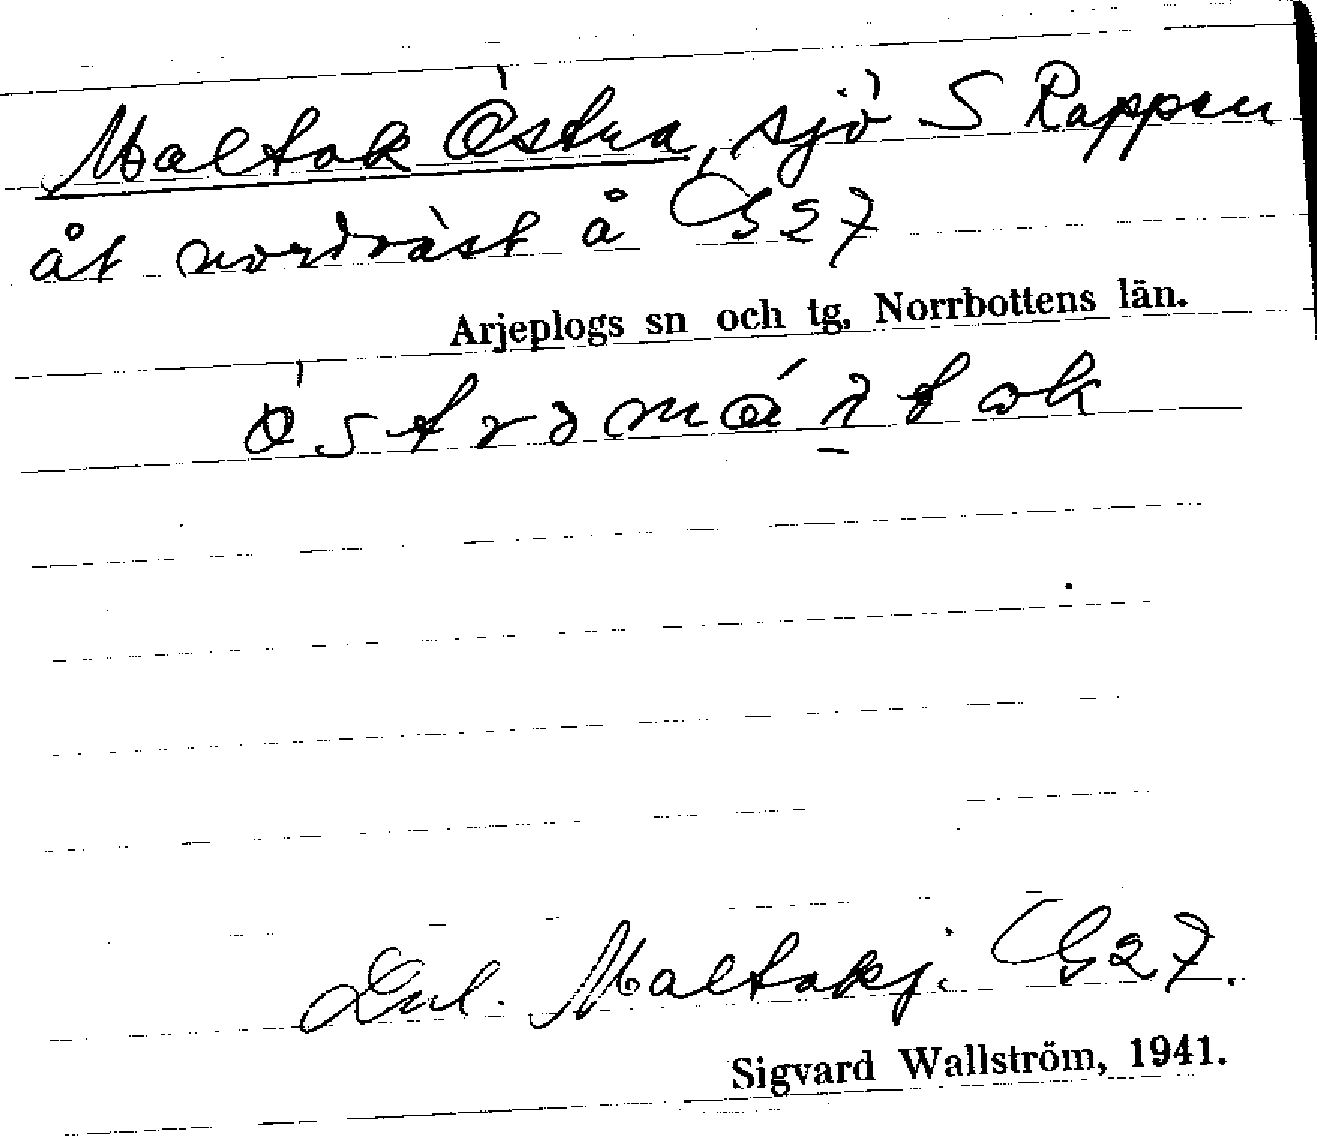 Maltak Östra, sjö S Rappen
åt nordväst å G27
Arjeplogs sn och tg, Norrbottens län.
Maltakj. G27.
Sigvard Wallström, 1941.